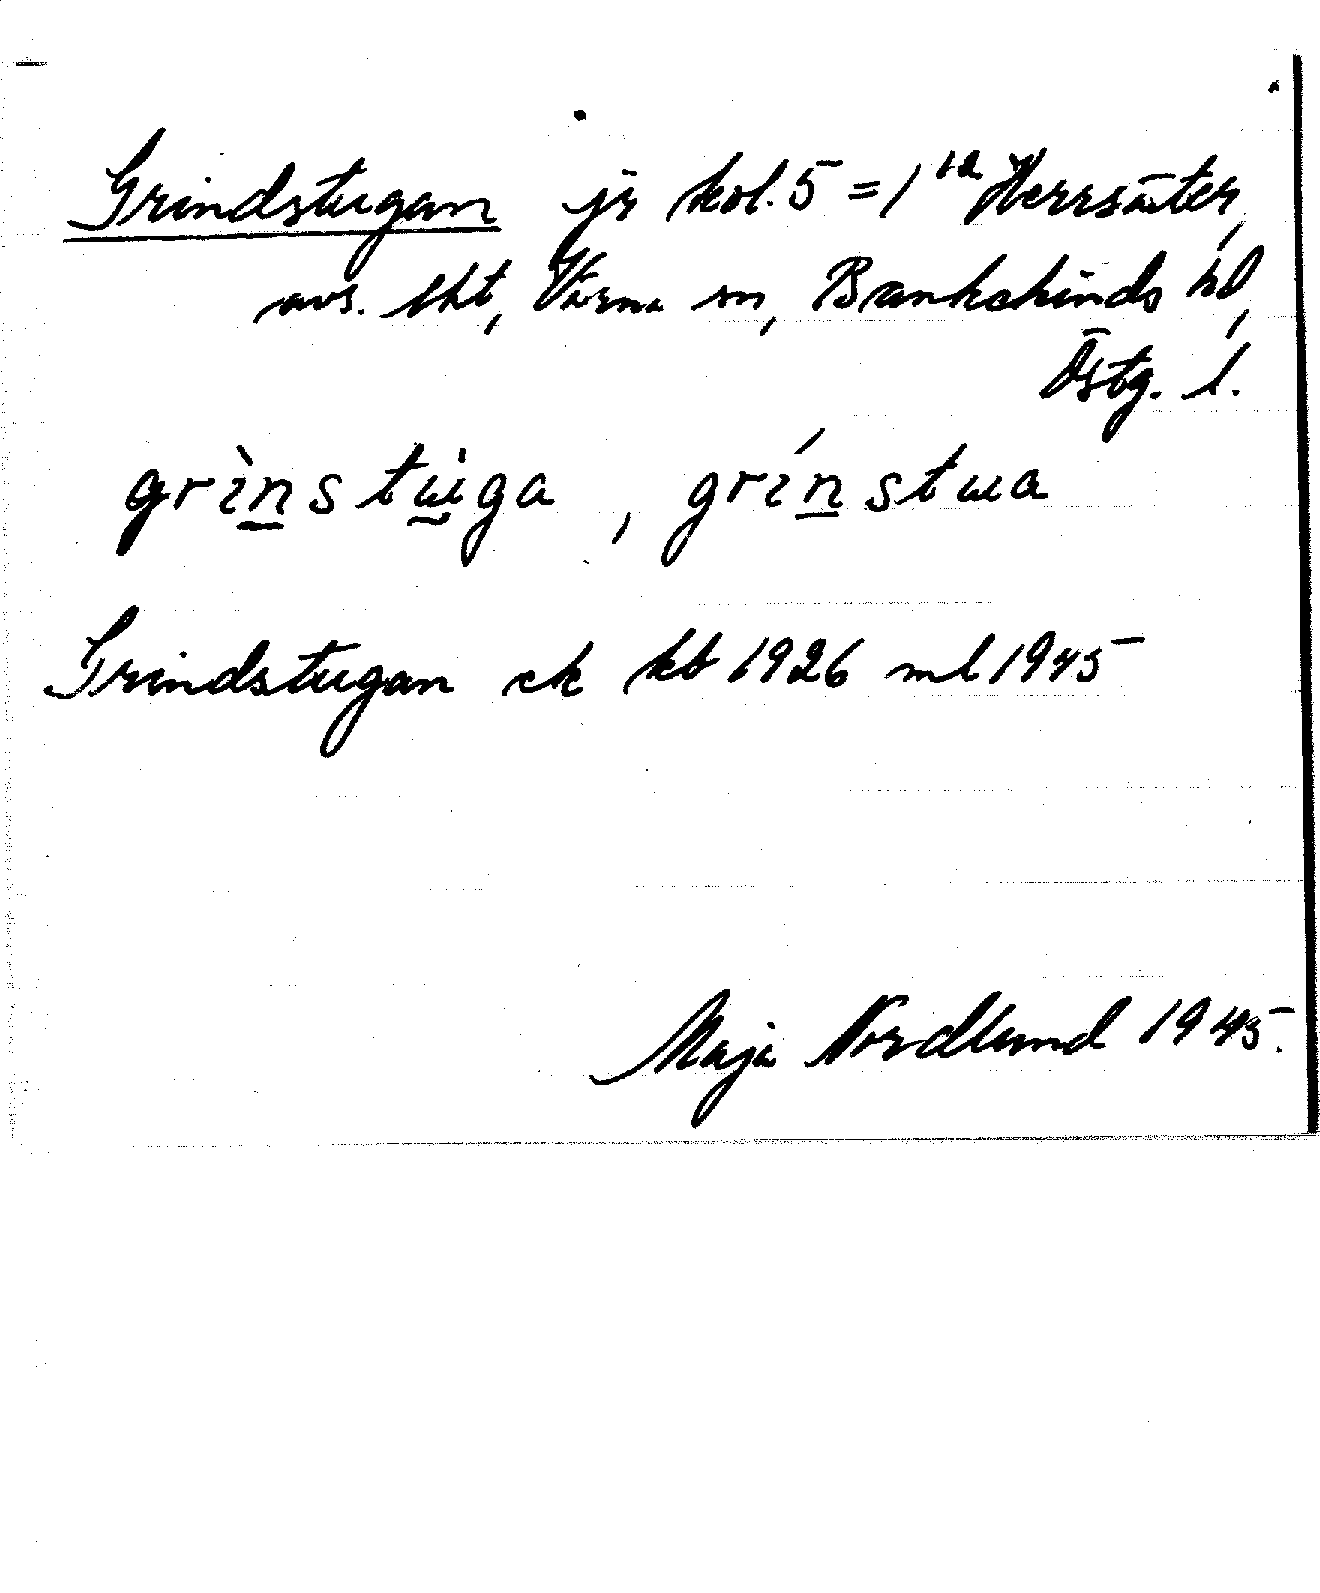 Grindstugan jr kol. 5 = 1¹² Herrsäter,
avs. lht, Värna sn, Bankekinds hd,
Östg. l.
grìn̲stu̲̇ga, grín̲stua
Grindstugan ek kb 1926 ml 1945
Maja Nordlund 1945.